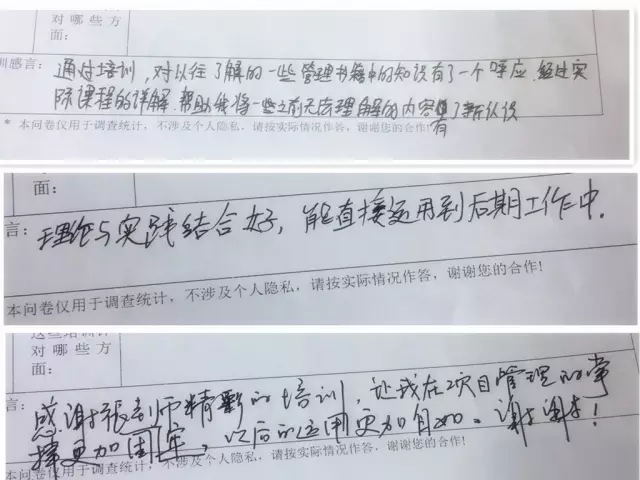 对哪些方
面：
训感言：
通过培训，对以往了解的一些管理书籍中的知识有了一个呼应，经过实
际课程的详解，帮助我将一些之前无法理解的内容有了新认识
* 本问卷仅用于调查统计，不涉及个人隐私，请按实际情况作答，谢谢您的合作!
面：
言：
理论与实践结合好，能直接运用到后期工作中．
本问卷仅用于调查统计，不涉及个人隐私，请按实际情况作答，谢谢您的合作!
这些培训计
对哪些方
面：
言：
感谢张老师精彩的培训，让我在项目管理的掌
握更加牢，以后的运用更加自如。谢谢！
本问卷仅用于调查统计，不涉及个人隐私，请按实际情况作答，谢谢您的合作!